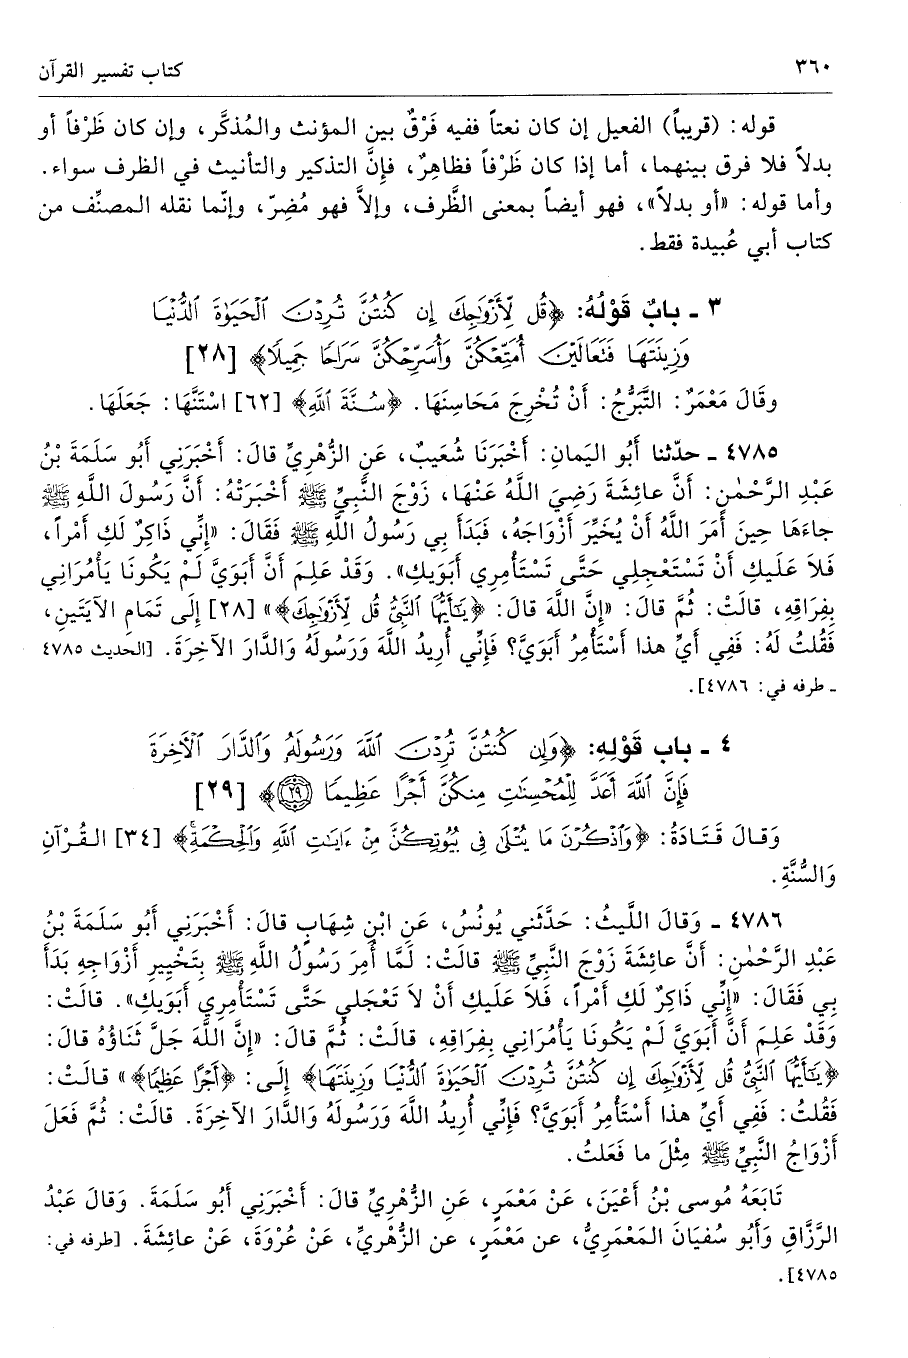 ٣٦٠ كتاب تفسير القرآن
قوله: (قريباً) الفعيل إن كان نعتاً ففيه فَرْقٌ بين المؤنث والمُذكَّر، وإن كان ظَرْفاً أو
بدلاً فلا فرق بينهما، أما إذا كان ظَرْفاً فظاهِرٌ، فإنَّ التذكير والتأنيث في الظرف سواء.
وأما قوله: «أو بدلاً»، فهو أيضاً بمعنى الظَّرف، وإلاَّ فهو مُضِرّ، وإنّما نقله المصنِّف من
كتاب أبي عُبيدة فقط.
٣ ـ بابٌ قَوْلُهُ: ﴿قُل لِّأَزْوَٰجِكَ إِن كُنتُنَّ تُرِدْنَ ٱلْحَيَوٰةَ ٱلدُّنْيَا
وَزِينَتَهَا فَتَعَالَيْنَ أُمَتِّعْكُنَّ وَأُسَرِّحْكُنَّ سَرَاحًا جَمِيلًا﴾ [٢٨]
وقَالَ مَعْمَرٌ: التَّبَرُّجُ: أَنْ تُخْرِجَ مَحَاسِنَهَا. ﴿سُنَّةَ ٱللَّهِ﴾ [٦٢] اسْتَنَّهَا: جَعَلَهَا.
٤٧٨٥ ـ حدّثنا أَبُو اليَمانِ: أَخْبَرَنَا شُعَيبٌ، عَنِ الزُّهْرِيِّ قالَ: أَخْبَرَنِي أَبُو سَلَمَةَ بْنُ
عَبْدِ الرَّحْمٰنِ: أَنَّ عائِشَةَ رَضِيَ اللَّهُ عَنْهَا، زَوْجَ النَّبِيِّ ﷺ أَخْبَرَتْهُ: أَنَّ رَسُولَ اللَّهِ ﷺ
جاءَهَا حِينَ أَمَرَ اللَّهُ أَنْ يُخَيِّرَ أَزْوَاجَهُ، فَبَدَأَ بِي رَسُولُ اللَّهِ ﷺ فَقَالَ: «إِنِّي ذَاكِرٌ لَكِ أَمْراً،
فَلاَ عَلَيكِ أَنْ تَسْتَعْجِلِي حَتَّى تَسْتَأْمِرِي أَبَوَيكِ». وَقَدْ عَلِمَ أَنَّ أَبَوَيَّ لَمْ يَكُونَا يَأْمُرَانِي
بِفِرَاقِهِ، قالَتْ: ثُمَّ قالَ: «إِنَّ اللَّهَ قالَ: ﴿يَٰٓأَيُّهَا ٱلنَّبِىُّ قُل لِّأَزْوَٰجِكَ﴾» [٢٨] إِلَى تَمَامِ الآيَتَينِ،
فَقُلتُ لَهُ: فَفِي أَيِّ هذا أَسْتَأْمِرُ أَبَوَيَّ؟ فَإِنِّي أُرِيدُ اللَّهَ وَرَسُولَهُ وَالدَّارَ الآخِرَةَ. [الحديث ٤٧٨٥
ـ طرفه في: ٤٧٨٦].
٤ ـ باب قَوْلِهِ: ﴿وَإِن كُنتُنَّ تُرِدْنَ ٱللَّهَ وَرَسُولَهُۥ وَٱلدَّارَ ٱلْأَخِرَةَ
فَإِنَّ ٱللَّهَ أَعَدَّ لِلْمُحْسِنَٰتِ مِنكُنَّ أَجْرًا عَظِيمًا ٢٩﴾ [٢٩]
وَقَالَ قَتَادَةُ: ﴿وَٱذْكُرْنَ مَا يُتْلَىٰ فِى بُيُوتِكُنَّ مِنْ ءَايَٰتِ ٱللَّهِ وَٱلْحِكْمَةِ﴾ [٣٤] القُرْآنِ
وَالسُّنَّةِ.
٤٧٨٦ ـ وَقالَ اللَّيثُ: حَدَّثَني يُونُسُ، عَنِ ابْنِ شِهَابٍ قالَ: أَخْبَرَنِي أَبُو سَلَمَةَ بْنُ
عَبْدِ الرَّحْمٰنِ: أَنَّ عائِشَةَ زَوْجَ النَّبِيِّ ﷺ قالَتْ: لَمَّا أُمِرَ رَسُولُ اللَّهِ ﷺ بِتَخْيِيرِ أَزْوَاجِهِ بَدَأَ
بِي فَقَالَ: «إِنِّي ذَاكِرٌ لَكِ أَمْراً، فَلاَ عَلَيكِ أَنْ لاَ تَعْجَلِي حَتَّى تَسْتَأْمِرِي أَبَوَيكِ». قالَتْ:
وَقَدْ عَلِمَ أَنَّ أَبَوَيَّ لَمْ يَكُونَا يَأْمُرَانِي بِفِرَاقِهِ، قالَتْ: ثُمَّ قالَ: «إِنَّ اللَّهَ جَلَّ ثَنَاؤُهُ قالَ:
﴿يَٰٓأَيُّهَا ٱلنَّبِىُّ قُل لِّأَزْوَٰجِكَ إِن كُنتُنَّ تُرِدْنَ ٱلْحَيَوٰةَ ٱلدُّنْيَا وَزِينَتَهَا﴾ إِلَى: ﴿أَجْرًا عَظِيمًا﴾» قالَتْ:
فَقُلتُ: فَفِي أَيِّ هذا أَسْتَأْمِرُ أَبَوَيَّ؟ فَإِنِّي أُرِيدُ اللَّهَ وَرَسُولَهُ وَالدَّارَ الآخِرَةَ. قالَتْ: ثُمَّ فَعَلَ
أَزْوَاجُ النَّبِيِّ ﷺ مِثْلَ ما فَعَلتُ.
تَابَعَهُ مُوسى بْنُ أَعْيَنَ، عَنْ مَعْمَرٍ، عَنِ الزُّهْرِيِّ قالَ: أَخْبَرَنِي أَبُو سَلَمَةَ. وَقالَ عَبْدُ
الرَّزَّاقِ وَأَبُو سُفيَانَ المَعْمَرِيُّ، عن مَعْمَرٍ، عن الزُّهْرِيِّ، عَنْ عُرْوَةَ، عَنْ عائِشَةَ. [طرفه في:
٤٧٨٥].